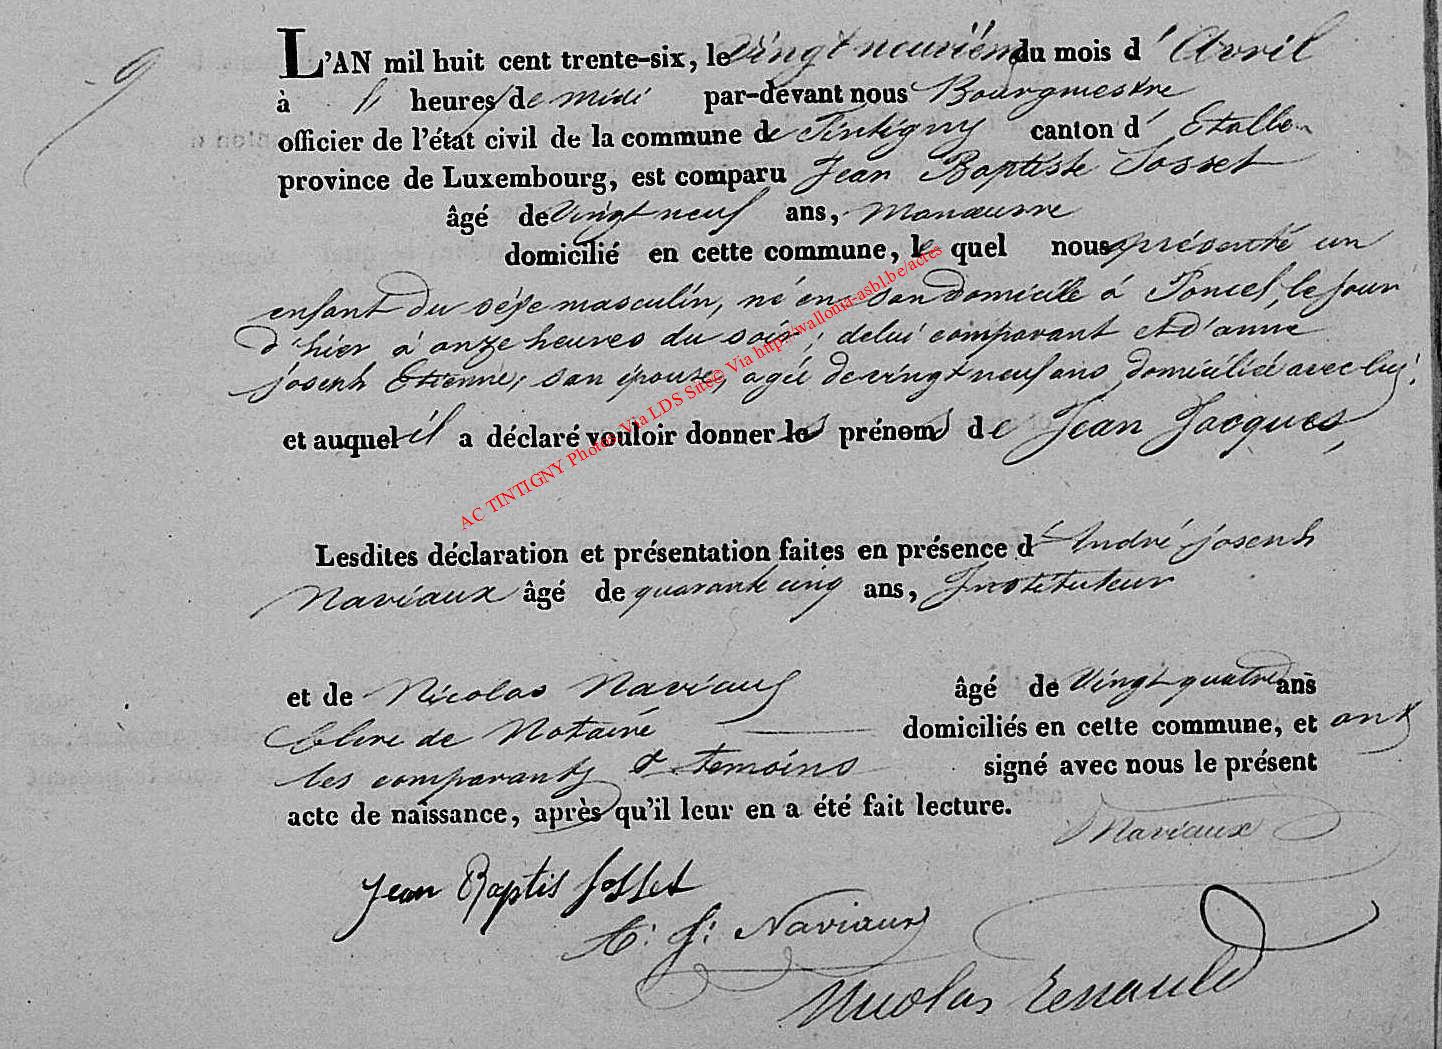 9
L'AN mil huit cent trente-six, le vingt neuvième du mois d'Avril
à heures de midi par-devant nous Bourgmestre
officier de l'état civil de la commune de Tintigny canton d'Etalle
province de Luxembourg, est comparu Jean Baptiste Josset
âgé de vingt neuf ans, Manœuvre
domicilié en cette commune, le quel nous a présenté un
enfant du sexe masculin, né en son domicile à Poncel, le jour
d'hier à onze heures du soir, de lui comparant et d'anne
joseph Etienne, son épouse, agée de vingt neuf ans domiciliée avec lui,
et auquel il a déclaré vouloir donner les prénoms de Jean Jacques,
Lesdites déclaration et présentation faites en présence d'André joseph
Naviaux âgé de quarante cinq ans, Instituteur
et de Nicolas Naviaux âgé de Vingt quatre ans
Clerc de Notaire domiciliés en cette commune, et ont
les comparants & temoins signé avec nous le présent
acte de naissance, après qu'il leur en a été fait lecture.
Naviaux
Jean Baptis Josset
A. J. Naviaux
Nicolas
AC TINTIGNY Photos Via LDS Snec© Via http://wallonia-asbl.be/actes